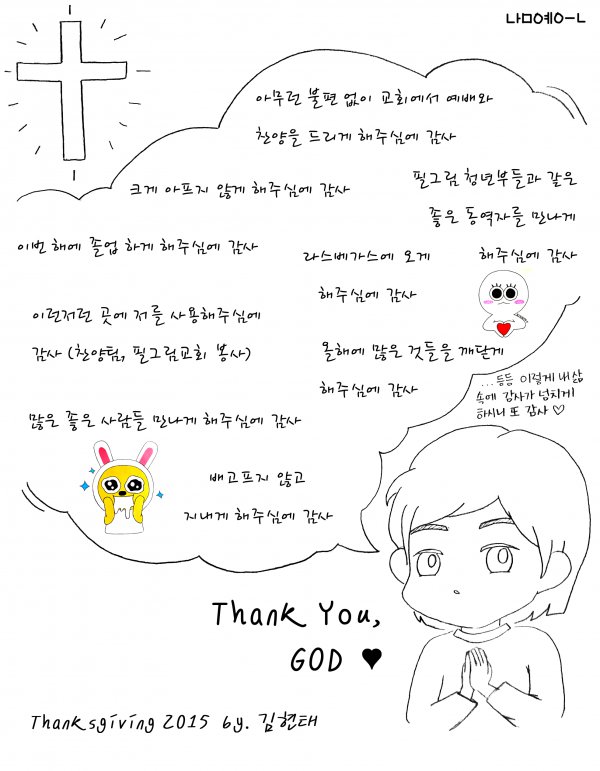 나ㅁ예ㅇㅡㄴ
아무런 불편 없이 교회에서 예배와
찬양을 드리게 해주심에 감사
크게 아프지 않게 해주심에 감사
필그림 청년부들과 같은
좋은 동역자를 만나게
해주심에 감사
이번 해에 졸업 하게 해주심에 감사
라스베가스에 오게
해주심에 감사
이런저런 곳에 저를 사용해주심에
감사 (찬양팀, 필그림교회 봉사)
올해에 많은 것들을 깨닫게
해주심에 감사
...등등 이렇게 내 삶
속에 감사가 넘치게
하시니 또 감사 ♡
많은 좋은 사람들 만나게 해주심에 감사
배고프지 않고
지내게 해주심에 감사
Thank You,
GOD ♥
Thanksgiving 2015 by. 김현태